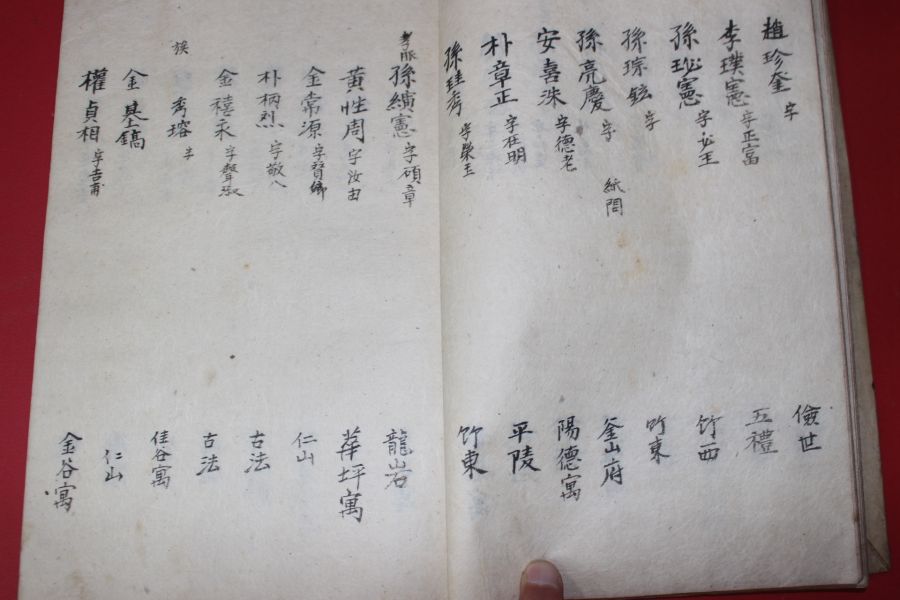 趙珍奎 字 儉世
李璞憲 字正富 五禮
孫珌憲 字必玉 竹西
孫琮鉉 字 竹東
孫亮慶 字 紙問 釜山府
安喜洙 字德老 陽德寓
朴章正 字在明 平陵
孫珪秀 字榮玉 竹東
孫纘憲 字碩章 龍岩
黃性周 字汝由 華坪寓
金常源 字賢卿 仁山
朴炳烈 字敬八 古法
金禧永 字聲淑 古法
族 秀瑢 字 佳谷寓
金基鎬 仁山
權貞相 字吉甫 金谷寓